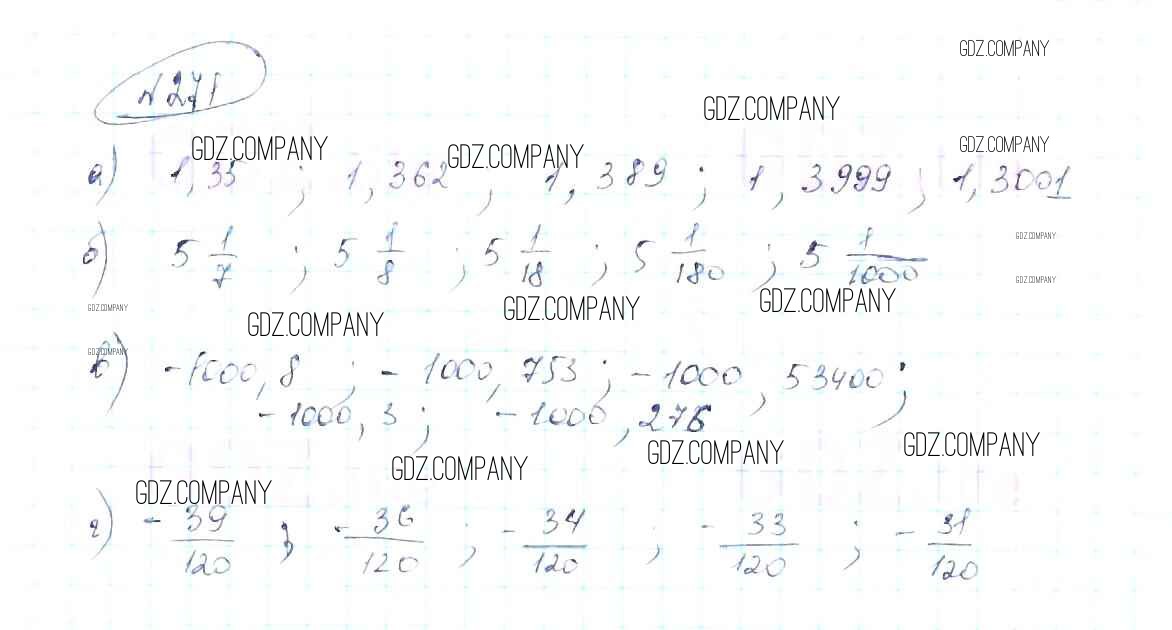 GDZ.COMPANY
№ 271
GDZ.COMPANY
GDZ.COMPANY GDZ.COMPANY GDZ.COMPANY
а) 1,35 ; 1,362 ; 1,389 ; 1,3999 ; 1,3001
GDZ.COMPANY
б) 5 1/7 ; 5 1/8 ; 5 1/18 ; 5 1/180 ; 5 1/1000
GDZ.COMPANY
GDZ.COMPANY GDZ.COMPANY GDZ.COMPANY GDZ.COMPANY
GDZ.COMPANY
в) -1000,8 ; -1000,753 ; -1000,53400 ;
-1000,3 ; -1000,276
GDZ.COMPANY GDZ.COMPANY GDZ.COMPANY
GDZ.COMPANY
г) - 39/120 ; - 36/120 ; - 34/120 ; - 33/120 ; - 31/120